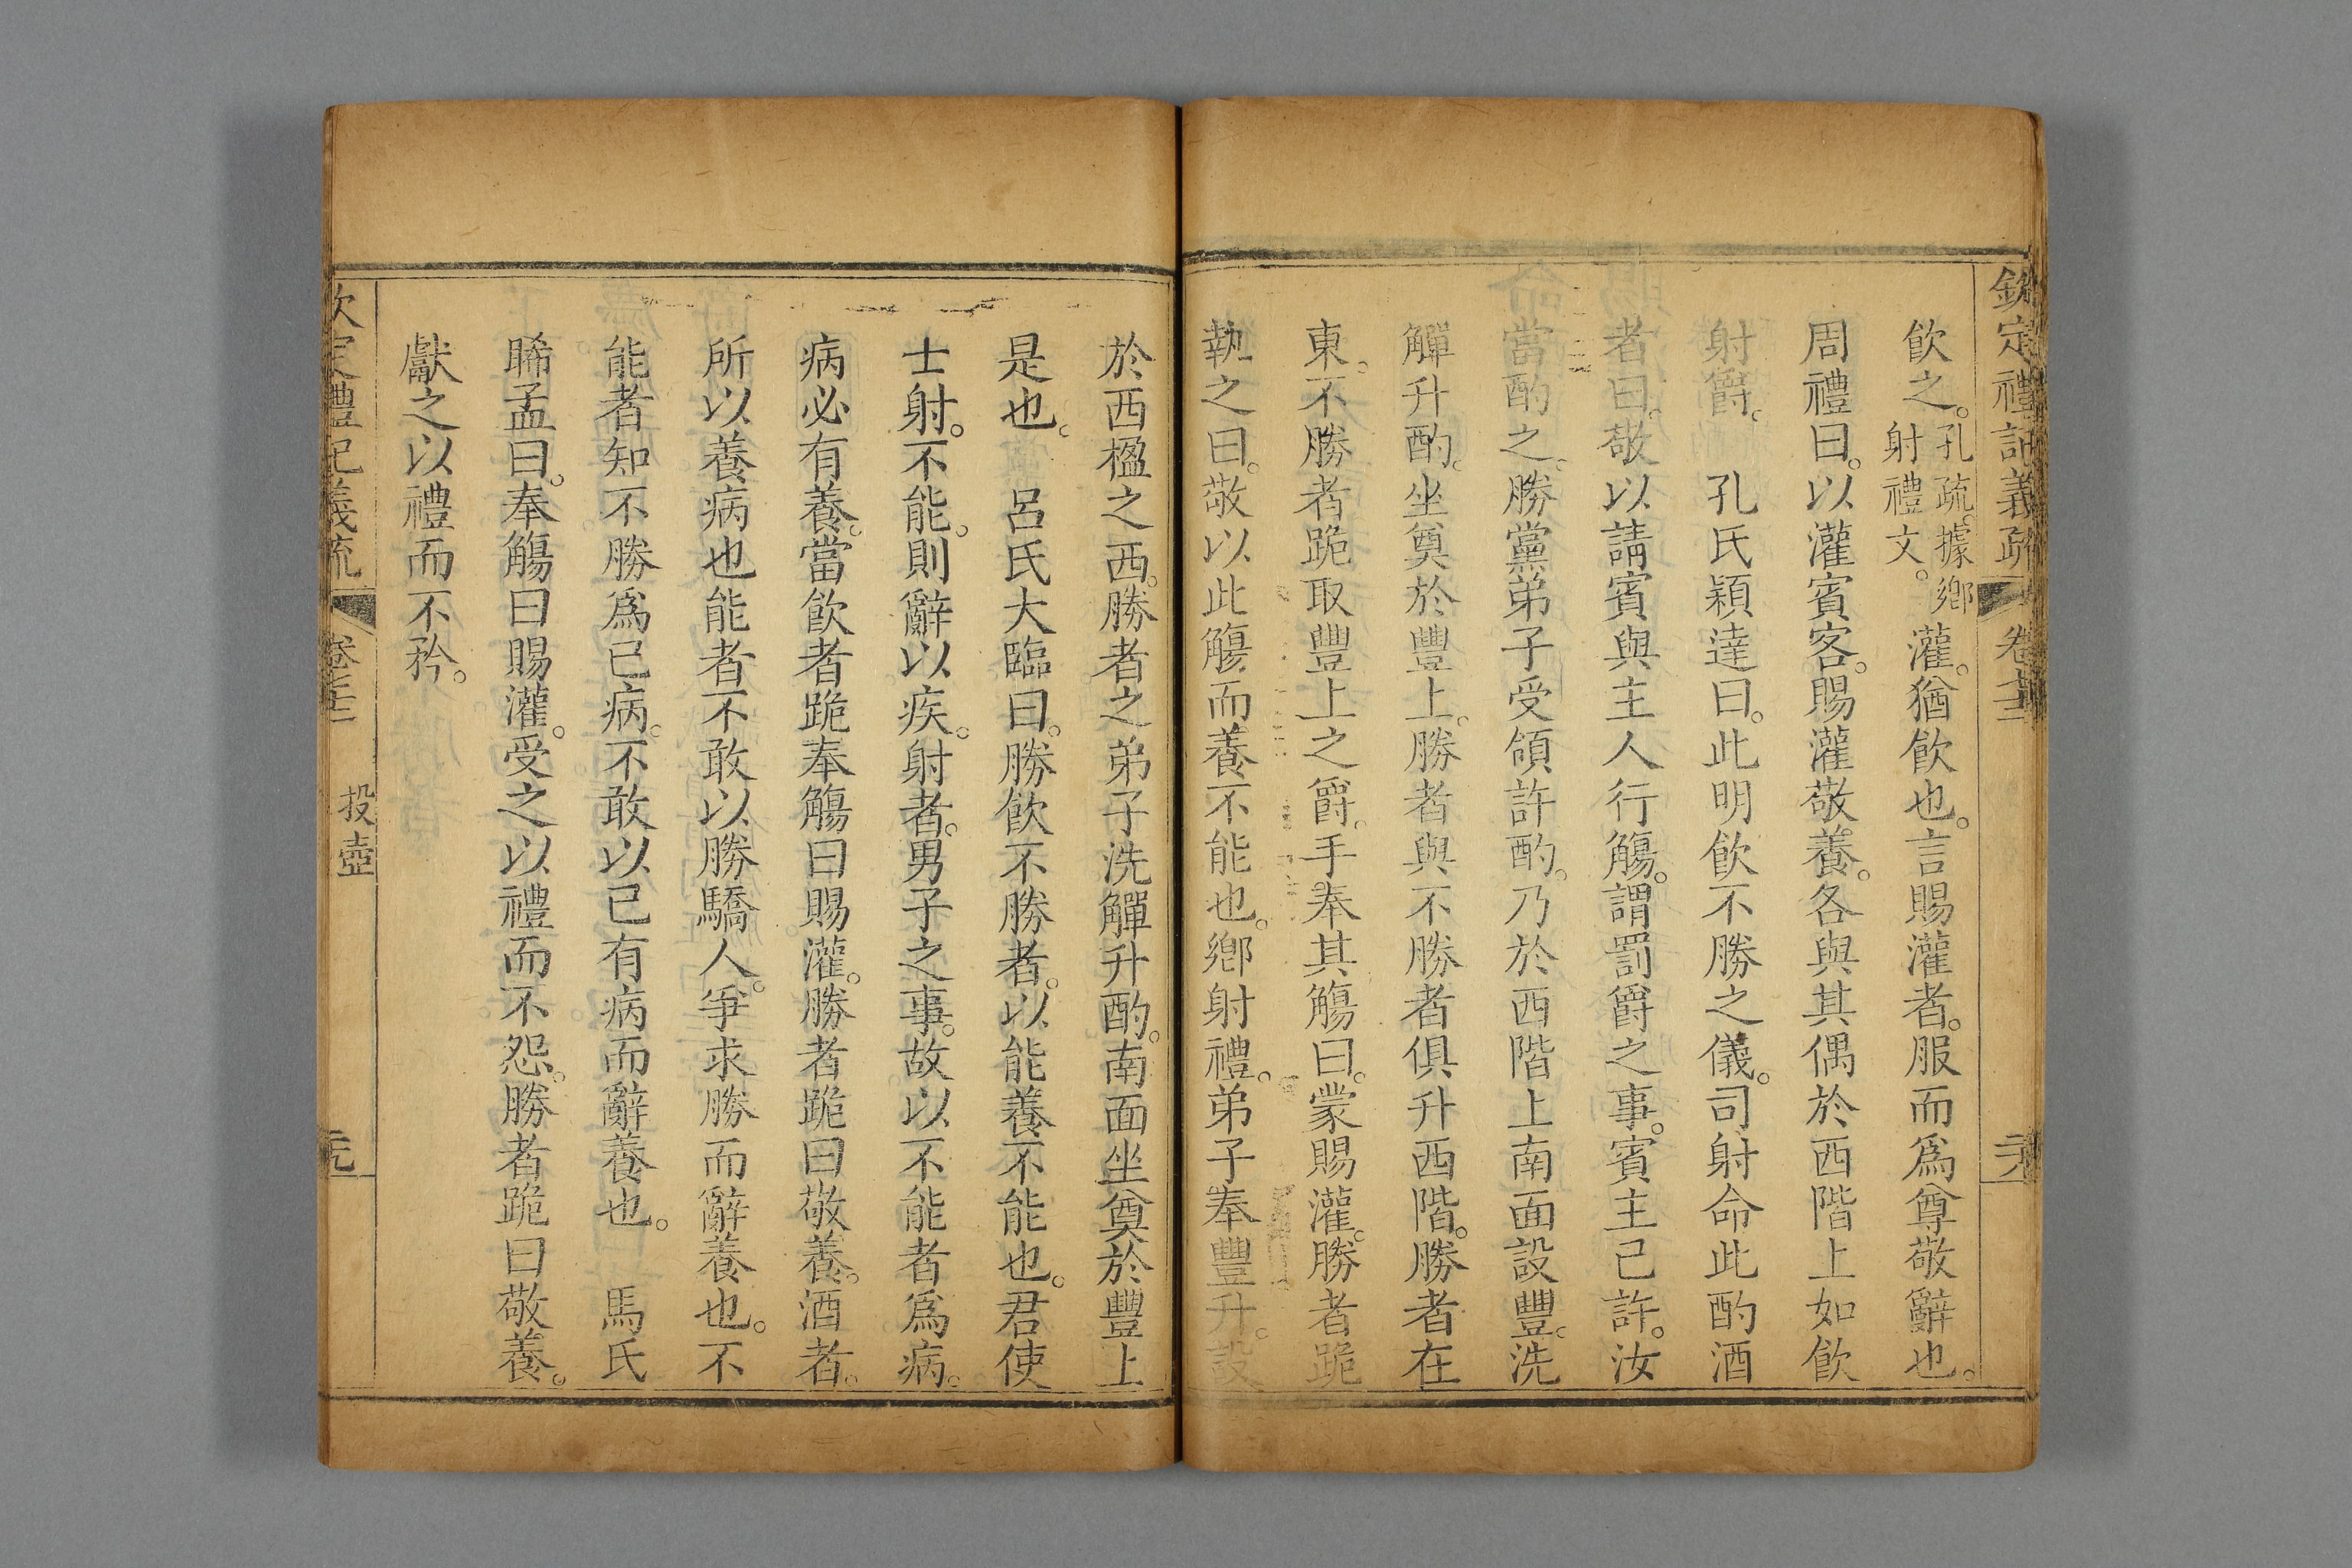 欽定禮記義疏 卷七十三 元
飲之。孔疏。據鄉射禮文。灌。猶飲也。言賜灌者。服而爲尊敬辭也。
周禮曰。以灌賓客。賜灌敬養。各與其偶於西階上如飲
射爵。 孔氏穎達曰。此明飲不勝之儀。司射命此酌酒
者曰。敬以請賓與主人行觴。謂罰爵之事。賓主已許。汝
當酌之。勝黨弟子受領許酌。乃於西階上南面設豐。洗
觶升酌。坐奠於豐上。勝者與不勝者俱升西階。勝者在
東。不勝者跪取豐上之爵。手奉其觴曰。蒙賜灌。勝者跪
執之曰。敬以此觴而養不能也。鄉射禮。弟子奉豐升。設
於西楹之西。勝者之弟子洗觶升酌。南面坐奠於豐上
是也。 呂氏大臨曰。勝飲不勝者。以能養不能也。君使
士射。不能。則辭以疾。射者。男子之事。故以不能者爲病。
病必有養。當飲者跪奉觴曰賜灌。勝者跪曰敬養。酒者。
所以養病也能者不敢以勝驕人。爭求勝而辭養也。不
能者知不勝爲已病。不敢以已有病而辭養也。 馬氏
睎孟曰。奉觴曰賜灌。受之以禮而不怨。勝者跪曰敬養。
獻之以禮而不矜。
欽定禮記義疏 卷七十三 投壺 元